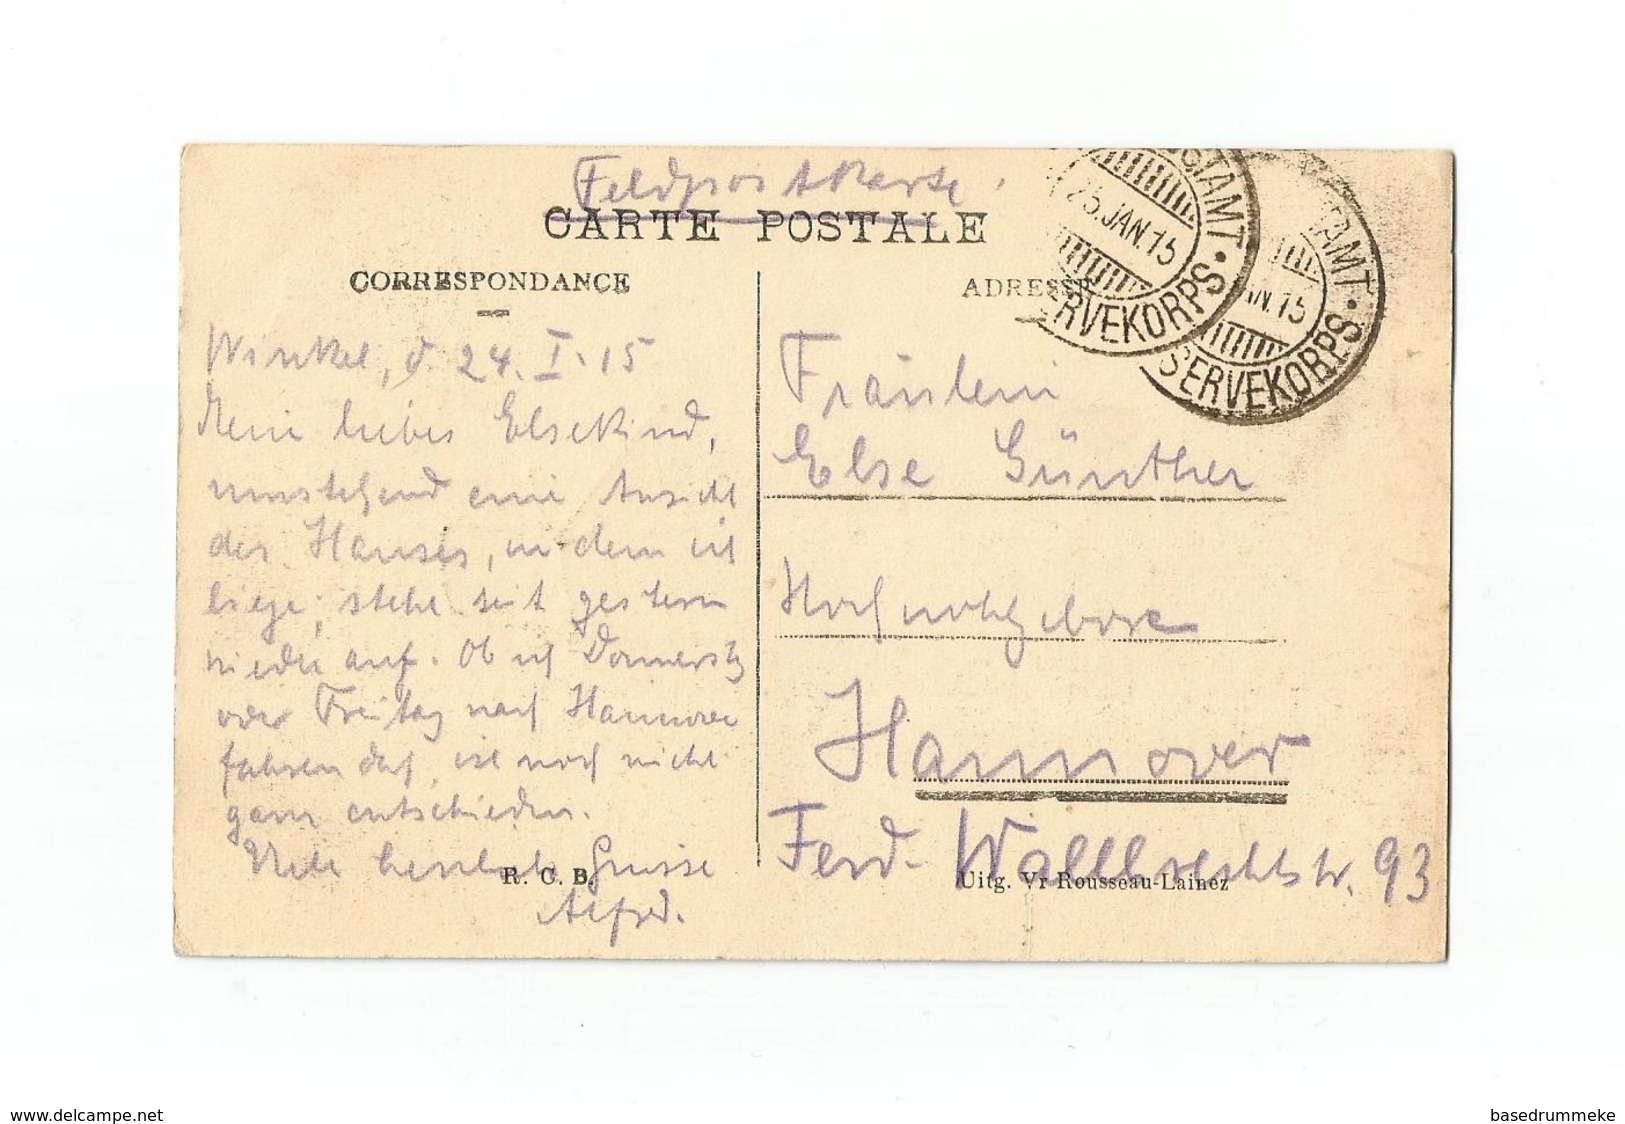 Feldpostkarte.
CARTE POSTALE
CORRESPONDANCE
ADRESSE
STAMT
25.JAN.15
SERVEKORPS
TAMT
AN.15
SERVEKORPS
Winkel, d. 24. I. 15
Mein liebes Elsekind,
umstehend eine Ansicht
des Hauses, in dem ich
liege; stehe seit gestern
wieder auf. Ob ich Donnerstg
oder Freitag nach Hannover
fahren darf, ist noch nicht
ganz entschieden.
Viele herzliche Grüsse
Alfred.
R. C. B.
Fräulein
Else Günther
Hochwohlgeboren
Hannover
Ferd. Wallbrechtstr. 93
Uitg. Vr Rousseau-Lainez
www.delcampe.net
basedrummeke